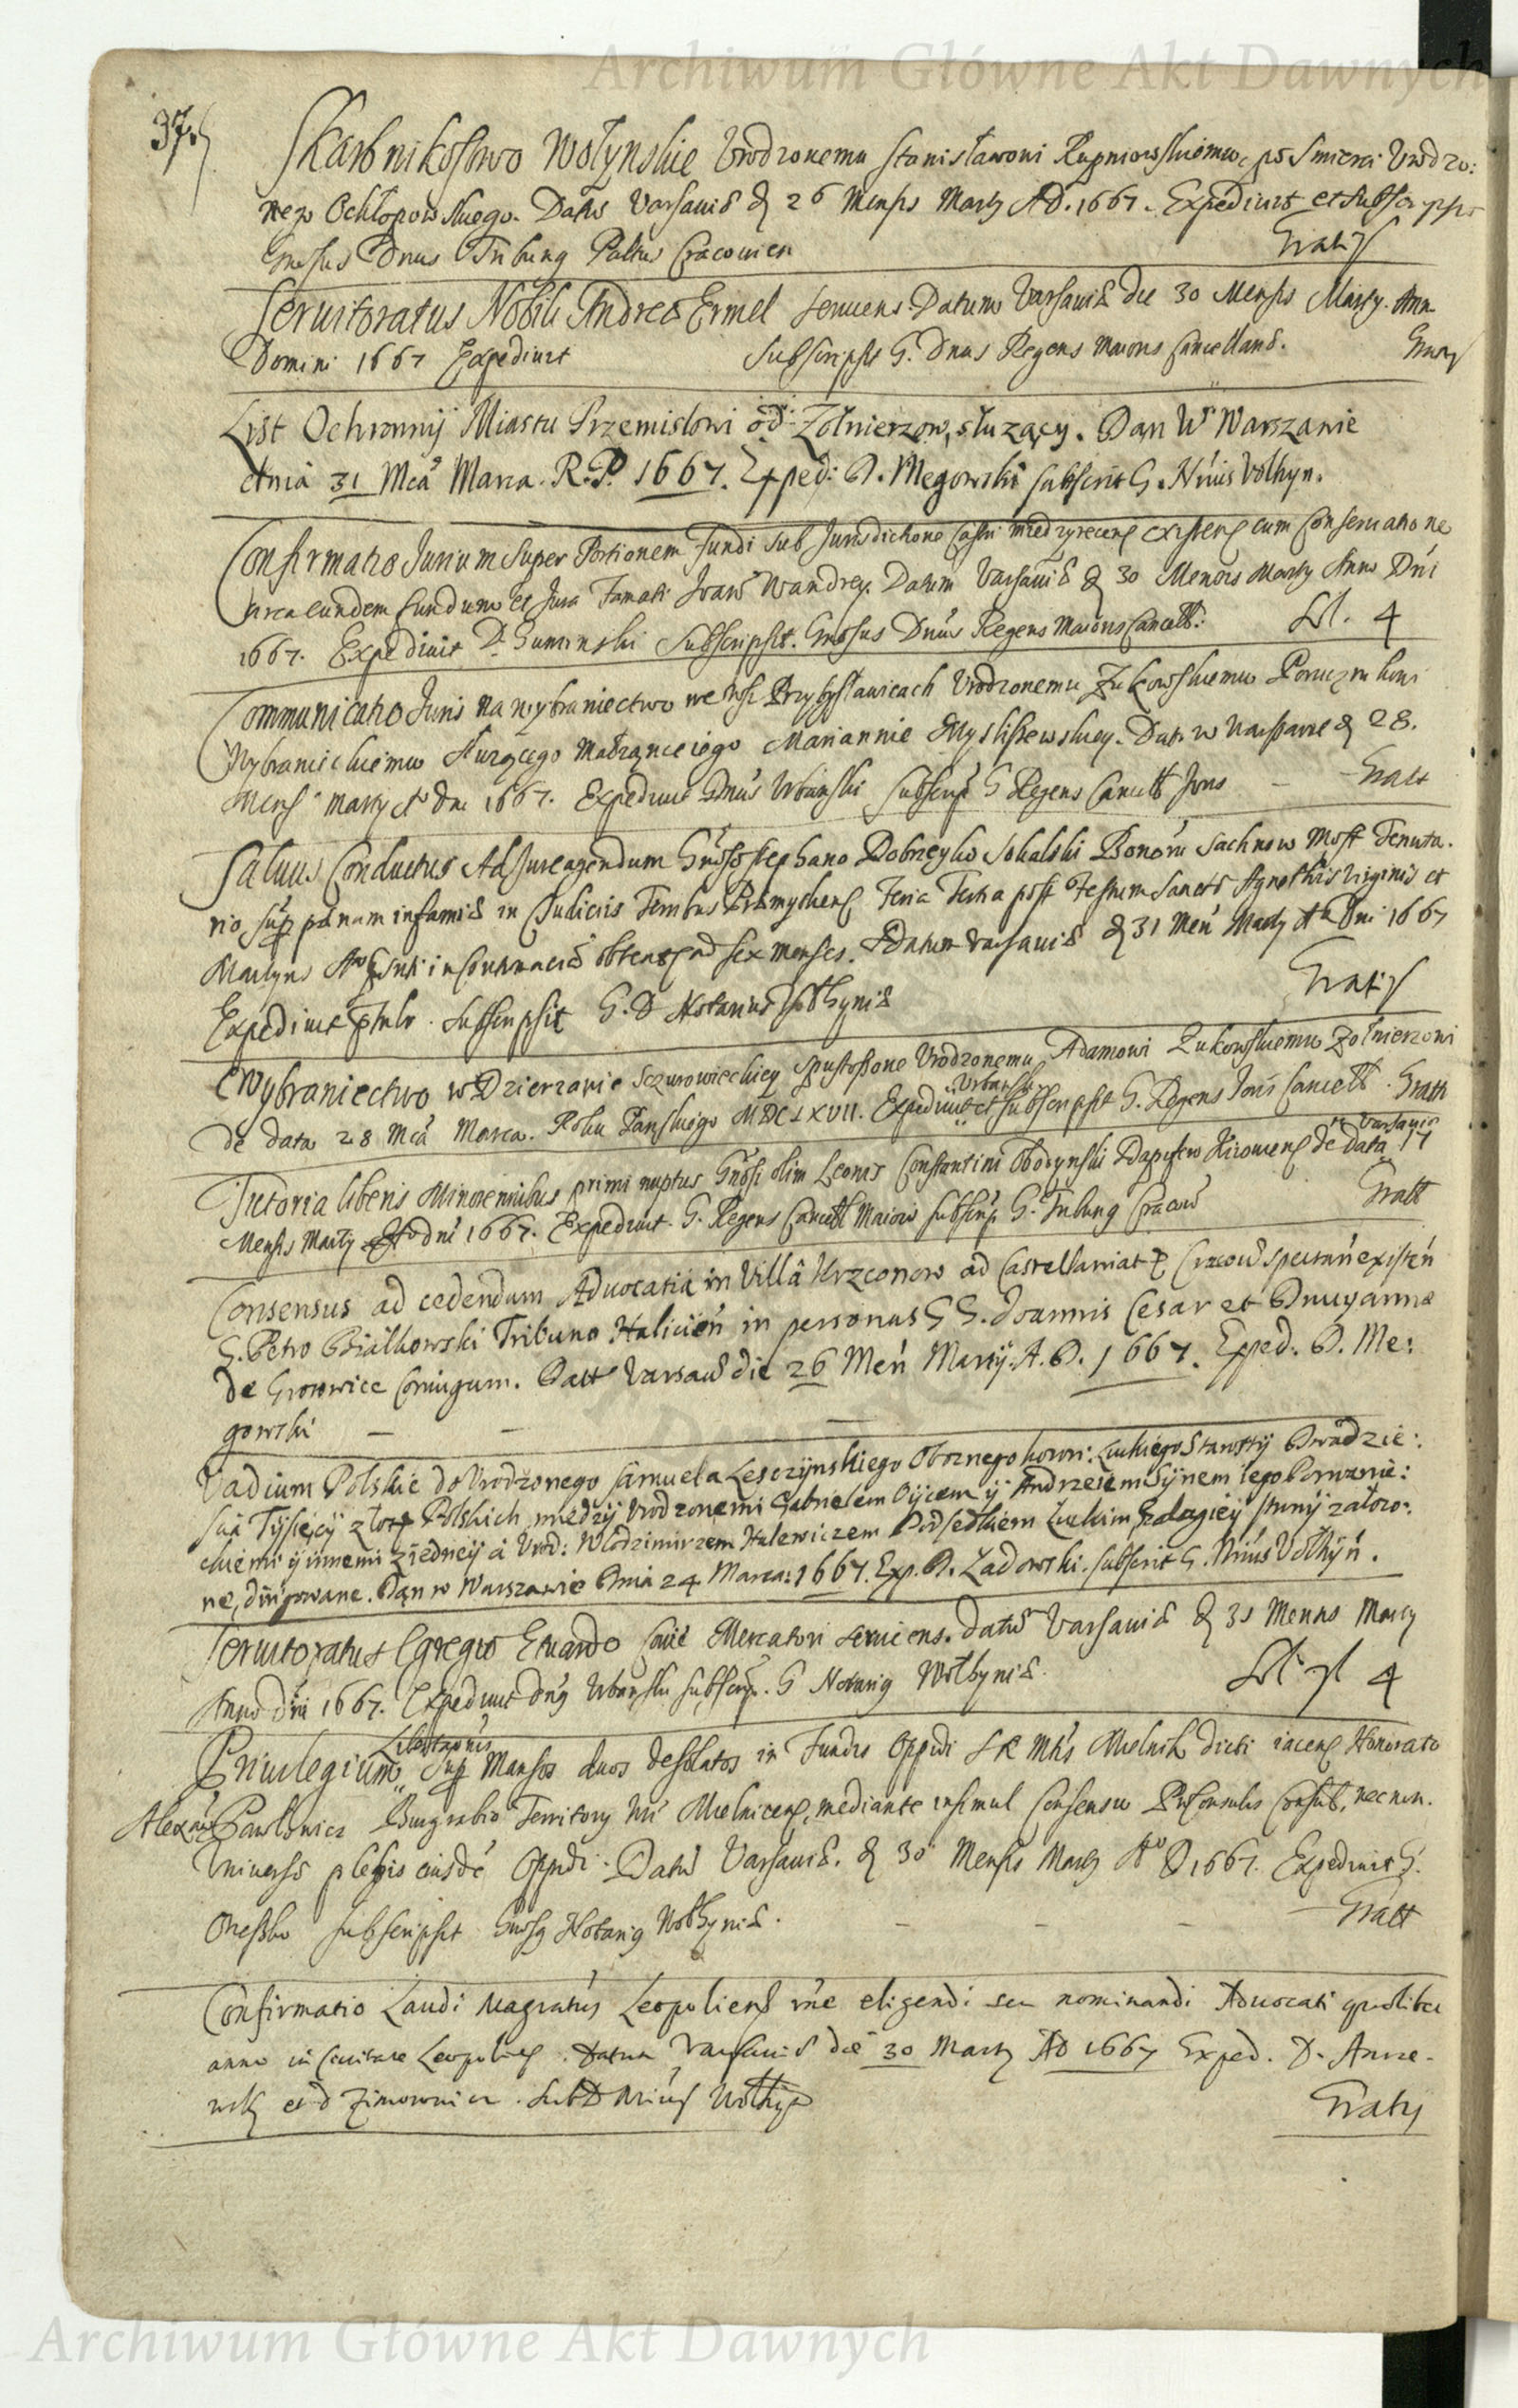 Archiwum Główne Akt Dawnych
Skarbnikostwo Wołynskie Urodzonemu Stanisławowi Rupniowskiemu, po Smierci Urodzo:
nego Ochłopowskiego. Datus Varsaviæ d 26 Mensis Martÿ AD. 1667. Expedivit et subscripsit
Gnosus Dnus Tribung Paltus Cracovien Gratis
Servitoratus Nobili Andreæ Ermel serviens. Datum Varsaviæ die 30 Mensis Martÿ. Ann
Domini 1667 Expedivit Subscripsit G. Dnus Regens Maioris Cancellariæ. Gratis
List Ochronnÿ Miastu Przemislowi od Zołnierzow, słuzącÿ. Dan W Warszawie
dnia 31 Mca Marca. R.P. 1667. Exped: D. Megowski subscrit G. Nrius Volhyn.
Confirmatio Jurium super Portionem Fundi sub Jurisdictione Castri Miedzyrecens existens cum Conservatione
circa eundem fundum et Jura Famati Wandrey. Datum Varsaviæ d 30 Mensis Martÿ Anno Dni
1667. Expedivit D. Guminski Subscripsit. Gnosus Dnus Regens Maioris Cancell: fl. 4
Communicatio Juris na wybraniectwo we wsi Przybysławicach Urodzonemu Zukowskiemu Porucznikowi
Wybranieckiemu słuzącego Małzące iego Mariannie Myśliszewskiey. Dat. w Warszawie d 28.
Mens Martÿ Ao Dni 1667. Expedivit Dnus Urbanski subscrip G Regens Cancell Joris - Gratt
Salvus Conductus Ad Jure agendum Gnoso Stephano Dobrzeyko Sokalski Bonorũ Sachnow Most Tenuta.
rio, sup pænam infamiæ in Judiciis Terribus Præmysliens Feria Tertia post Festum Sanctæ Agnethis Virginis et
Martyris in Contumaciã obtent ad sex menses. Datum Varsaviæ d 31 Men Martÿ Ao Dni 1667
Expedivit subscripsit G. D Notarius Volhyniæ Gratis
Wybraniectwo w Dzierzawie Sczurowieckiey spustoszone Urodzonemu Adamowi Zukowskiemu Zołnierzowi
Urbanski
de data 28 Mca Marca. Roku Panskiego MDCLXVII. Expedivit et subscripsit G. Regens Joris Cancell. Gratt
in Varsavia
Tutoria liberis Minorennibus primi nuptus Gnosi olim Leonis Constantini Obodynski Dapifero Kiioviens de data 17
Mensis Martÿ Ao dni 1667. Expedivit. G. Regens Cancell Maioris subscrip G. Tribung Cracov Gratt
Consensus ad cedendum Advocatia in Villa Krzconow ad Castellaniat Cracov spectan existen
G. Petro Białkowski Tribuno Halicien in personas GG. Joannis Cesar et Druyanna
de Gronowice Coniugum. Datt Varsav die 26 Men Martÿ. A. D. 1667. Exped. D. Me:
gowski — — —
Vadium Polskie do Urodzonego Samuela Lesczÿnskiego Oboznego koron: Luckiego Starostÿ Dwadzie:
scia Tÿsięcÿ złotÿ Polskich, międzÿ Urodzonemi Gabrielem Oÿcem ÿ Andrzeiem Sÿnem iego
ÿ innemi z jedneÿ a Urod: Włodzimirzem Halewiczem Podsędkiem Luckim, z drugieÿ stronÿ załozo:
ne, dirigowane. Dan w Warszawie Dnia 24 Marca: 1667. Exp. D. Zadowski. subscrit G. Nrius Vołhÿn.
Servitoratus Egregio Eduardo Mercatori serviens. Datũ Varsaviæ d 31 Mensis Martÿ
Anno dni 1667. Expedivit dnÿ Urbanski subscrip. G Notarig Wołhyniæ. fl. 4
Libertationis
Privilegium sup Mansos duos desolatos in Fundis Oppidi S R Mtis Mielnik dicti iacens Honorato
Alexan Pawłowicz Burgrabio Territory Mielnicens, mediante insimul Consensu Proconsulis Consul, necnon.
Universæ plebis eiusdẽ Oppidi. Datũ Varsaviæ. d 30 Mensis Martÿ Ao D 1667. Expedivit G.
Oresko subscripsit Gnosg Notarig Wołhyniæ. - - - Gratt
Confirmatio Laudi Magratus Leopoliens rne eligendi seu nominandi Advocati quolibet
anno in Civitate Leopoliens. Datum Varsaviæ die 30 Martÿ AD 1667 Exped. D.
et D Zimorowicz. Sub D Nrius Wołhyn Gratis
Archiwum Główne Akt Dawnych